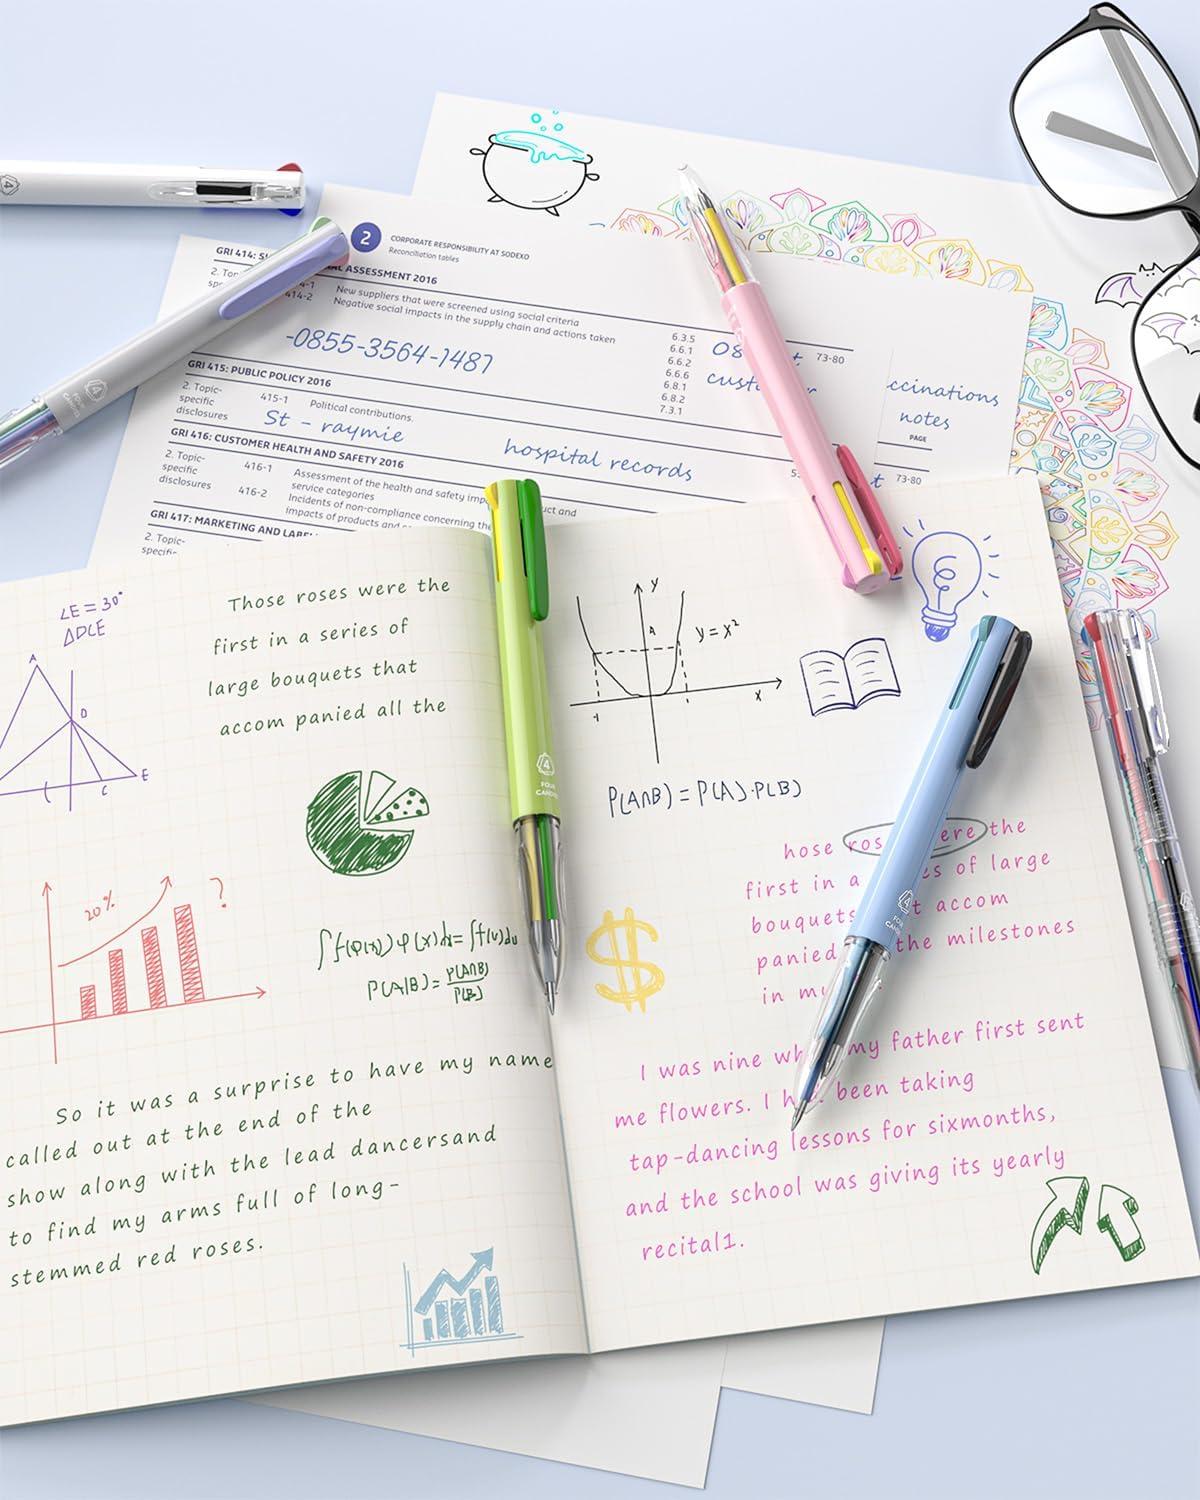 2
CORPORATE RESPONSIBILITY AT SODEXO
Reconciliation tables
GRI 414:
ASSESSMENT 2016
414-2
New suppliers that were screened using social criteria
Negative social impacts in the supply chain and actions taken
6.3.5
6.6.1
6.6.2
6.6.6
6.8.1
6.8.2
7.3.1
73-80
-0855-3564-1487
GRI 415: PUBLIC POLICY 2016
2. Topic-
specific
disclosures
415-1
Political contributions.
St - raymie
hospital records
notes
PAGE
73-80
GRI 416: CUSTOMER HEALTH AND SAFETY 2016
2. Topic-
specific
disclosures
416-1
Assessment of the health and safety
service categories
416-2
Incidents of non-compliance concerning
impacts of products and
GRI 417: MARKETING AND
2. Topic-
∠E = 30°
ΔDCE
A
D
E
C
Those roses were the
first in a series of
large bouquets that
accom panied all the
20%
?
∫f(φ(x))φ(x)dx=∫f(v)du
P(A|B)=P(A∩B)/P(B)
So it was a surprise to have my name
called out at the end of the
show along with the lead dancersand
to find my arms full of long-
stemmed red roses.
y
y=x²
x
P(A∩B)=P(A)·P(B)
hose the
first in a of large
bouquets accom
panied the milestones
in
$
I was nine my father first sent
me flowers. I been taking
tap-dancing lessons for sixmonths,
and the school was giving its yearly
recital1.
4
FOUR
CANDIES
4
4